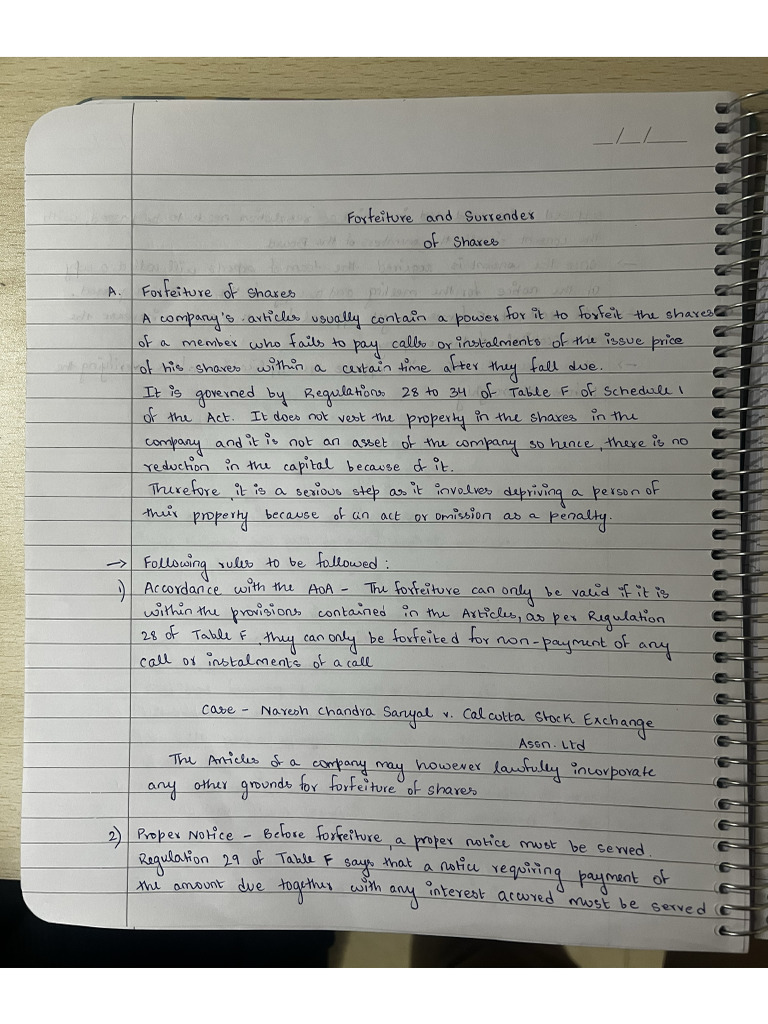 _/_/__
Forfeiture and Surrender
of Shares
A. Forfeiture of Shares
A company's articles usually contain a power for it to forfeit the shares
of a member who fails to pay calls or instalments of the issue price
of his shares within a certain time after they fall due.
It is governed by Regulations 28 to 34 of Table F of Schedule 1
of the Act. It does not vest the property in the shares in the
company and it is not an asset of the company so hence, there is no
reduction in the capital because of it.
Therefore, it is a serious step as it involves depriving a person of
their property because of an act or omission as a penalty.
→ Following rules to be followed:
1) Accordance with the AoA - The forfeiture can only be valid if it is
within the provisions contained in the Articles, as per Regulation
28 of Table F, they can only be forfeited for non-payment of any
call or instalments of a call
Case - Naresh Chandra Sanyal v. Calcutta Stock Exchange
Assn. Ltd
The Articles of a company may however lawfully incorporate
any other grounds for forfeiture of shares
2) Proper Notice - Before forfeiture, a proper notice must be served.
Regulation 29 of Table F says that a notice requiring payment of
the amount due together with any interest accured must be served